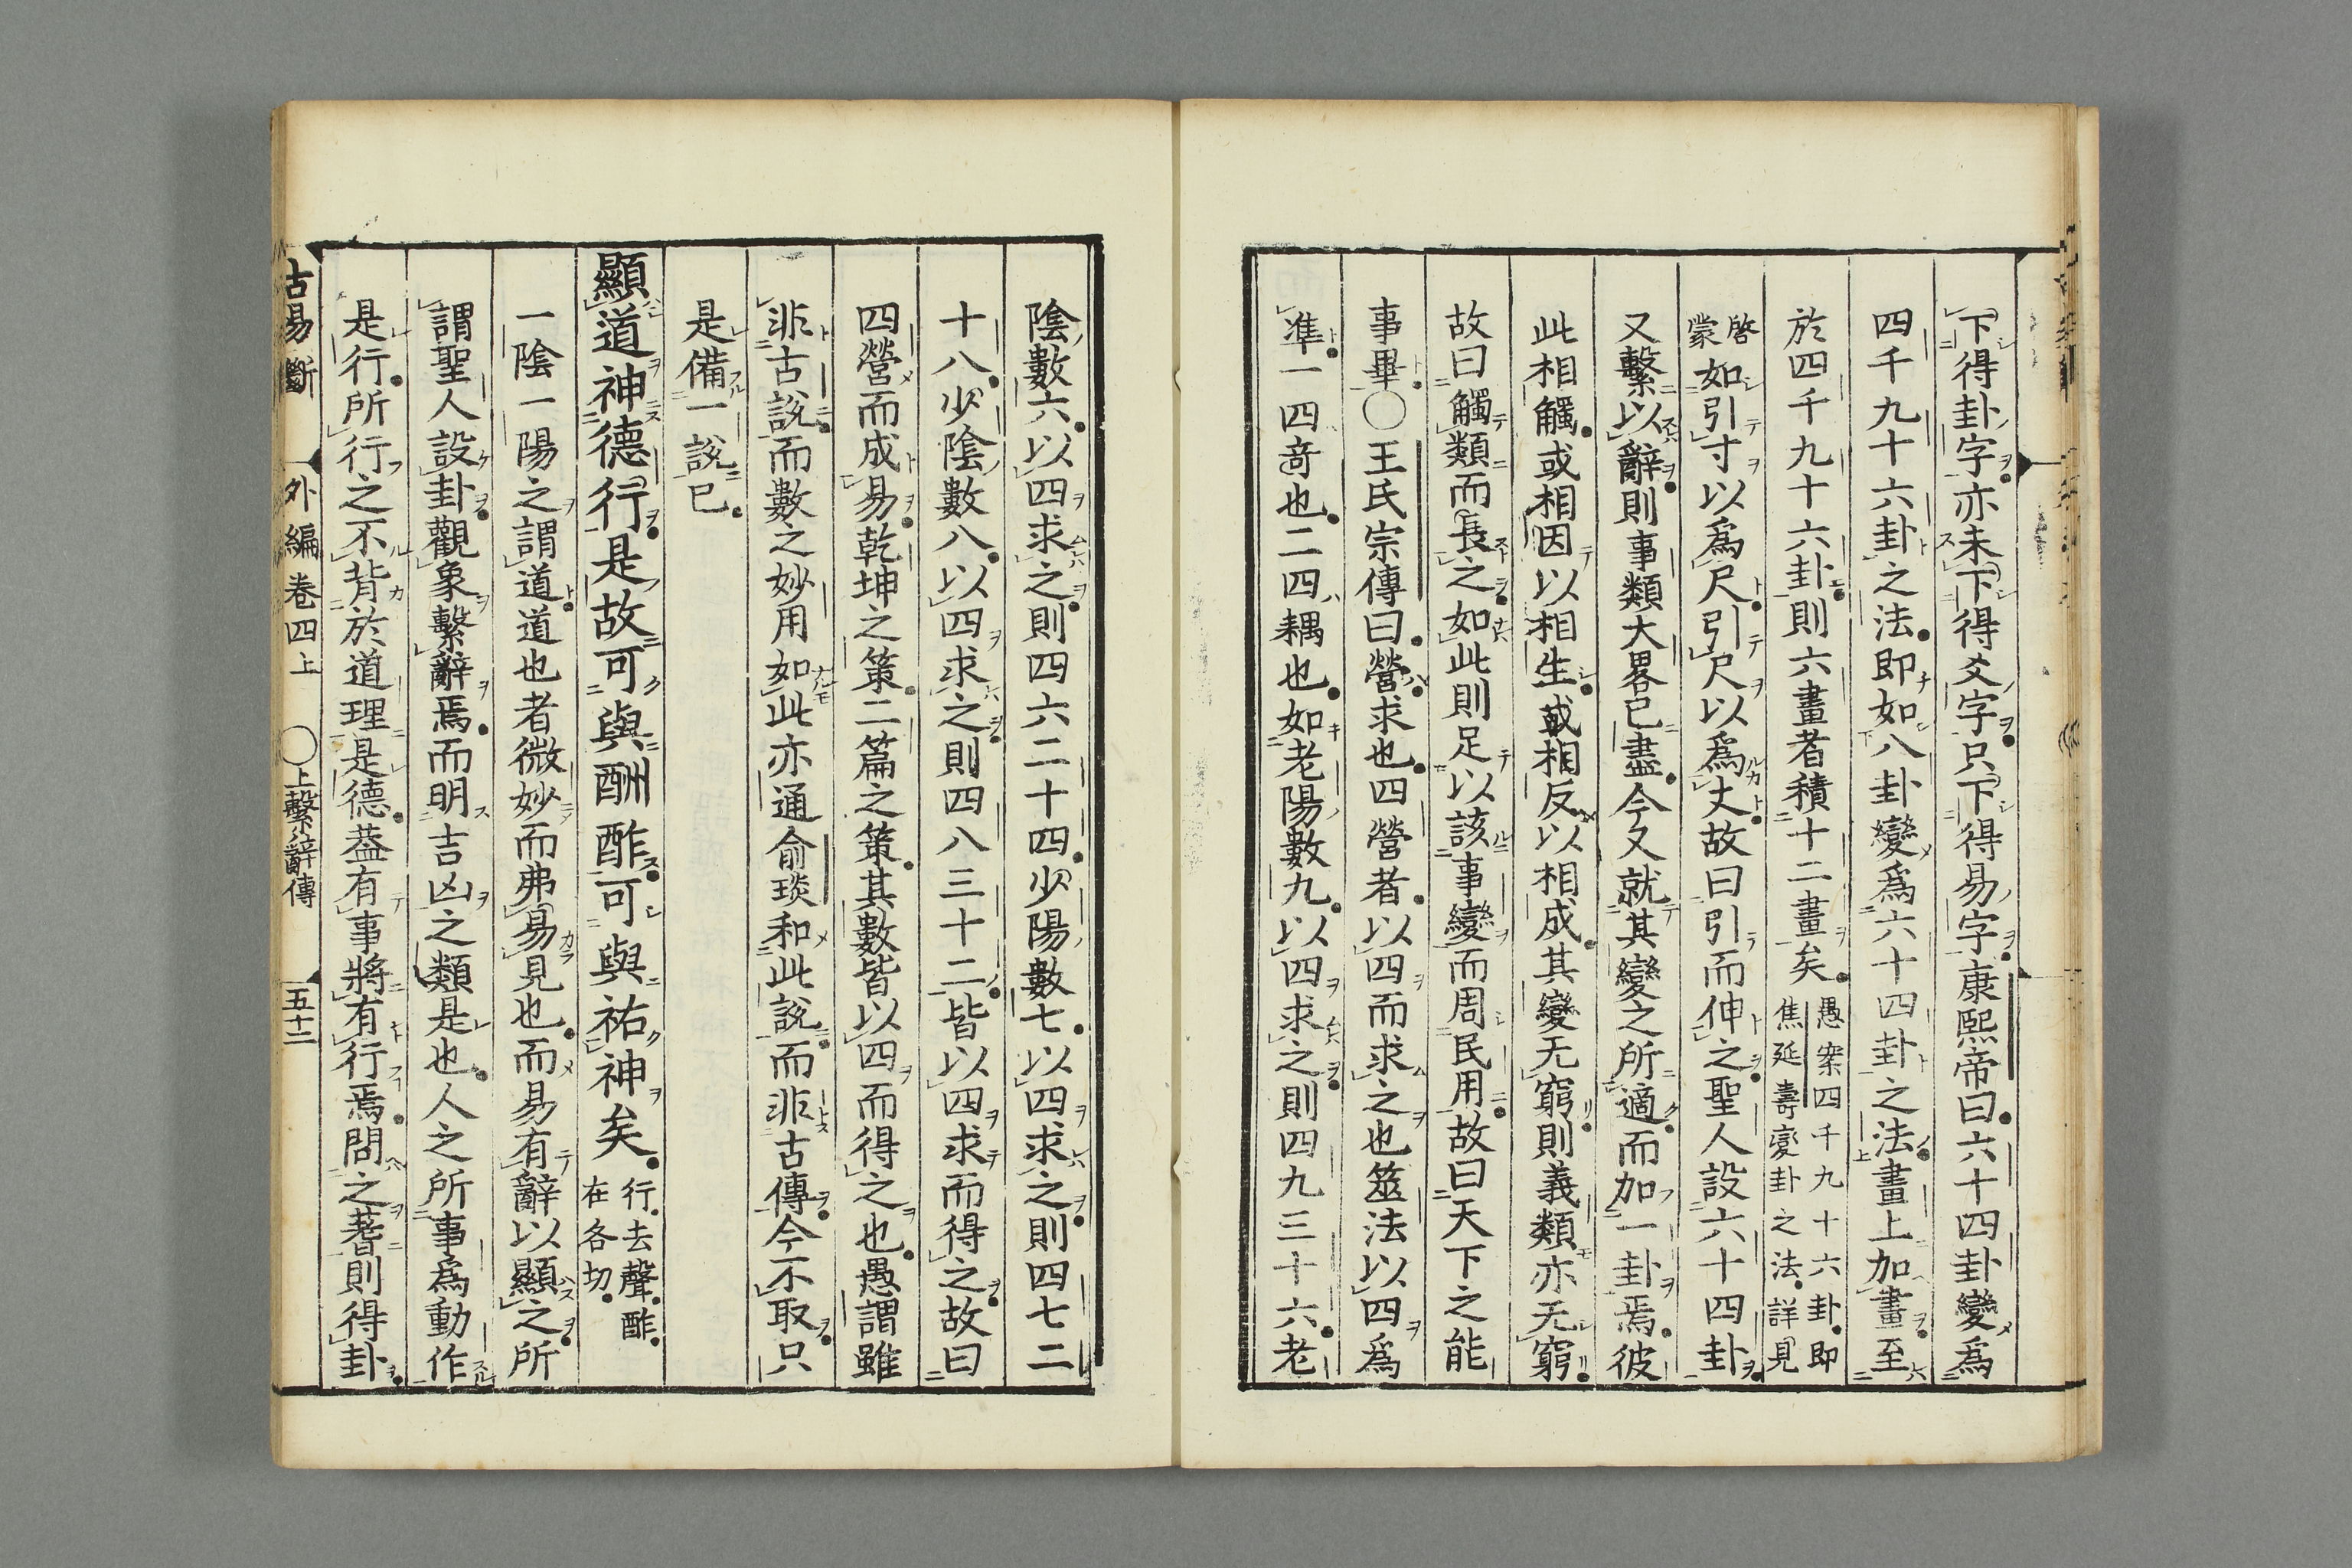 下得卦字亦未下得爻字只下得易字康熙帝曰六十四卦變爲
四千九十六卦之法即如八卦變爲六十四卦之法畫上加畫至
於四千九十六卦則六畫者積十二畫矣愚案四千九十六卦即
焦延壽變卦之法詳見
啓
蒙如引寸以爲尺引尺以爲丈故曰引而伸之聖人設六十四卦
又繫以辭則事類大畧已盡今又就其變之所適而加一卦焉彼
此相觸或相因以相生或相反以相成其變无窮則義類亦无窮
故曰觸類而長之如此則足以該事變而周民用故曰天下之能
事畢〇王氏宗傳曰營求也四營者以四而求之也筮法以四爲
準一四竒也二四耦也如老陽數九以四求之則四九三十六老
陰數六以四求之則四六二十四少陽數七以四求之則四七二
十八少陰數八以四求之則四八三十二皆以四求而得之故曰
四營而成易乾坤之策二篇之策其數皆以四而得之也愚謂雖
非古說而數之妙用如此亦通俞琰和此說而非古傳今不取只
是備一說已
顯道神德行是故可與酬酢可與祐神矣行去聲酢
在各切
一陰一陽之謂道道也者微妙而弗易見也而易有辭以顯之所
謂聖人設卦觀象繫辭焉而明吉凶之類是也人之所事爲動作
是行所行之不背於道理是德葢有事將有行焉問之蓍則得卦
古易斷 外編卷四上 〇上繫辭傳 五十二